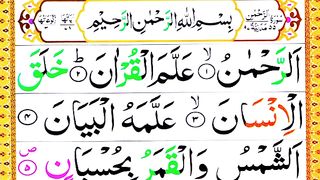 بِسْمِ اللهِ الرَّحْمٰنِ الرَّحِيْمِ
اَلرَّحْمٰنُ ۙ﴿۱﴾ عَلَّمَ الْقُرْاٰنَ ؕ﴿۲﴾ خَلَقَ
الْاِنْسَانَ ۙ﴿۳﴾ عَلَّمَهُ الْبَيَانَ ﴿۴﴾
اَلشَّمْسُ وَالْقَمَرُ بِحُسْبَانٍ ۪ص﴿۵﴾